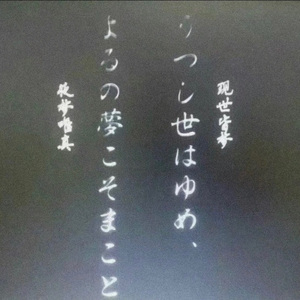 現世皆夢
うつし世はゆめ、
よるの夢こそまこと
夜夢唯真